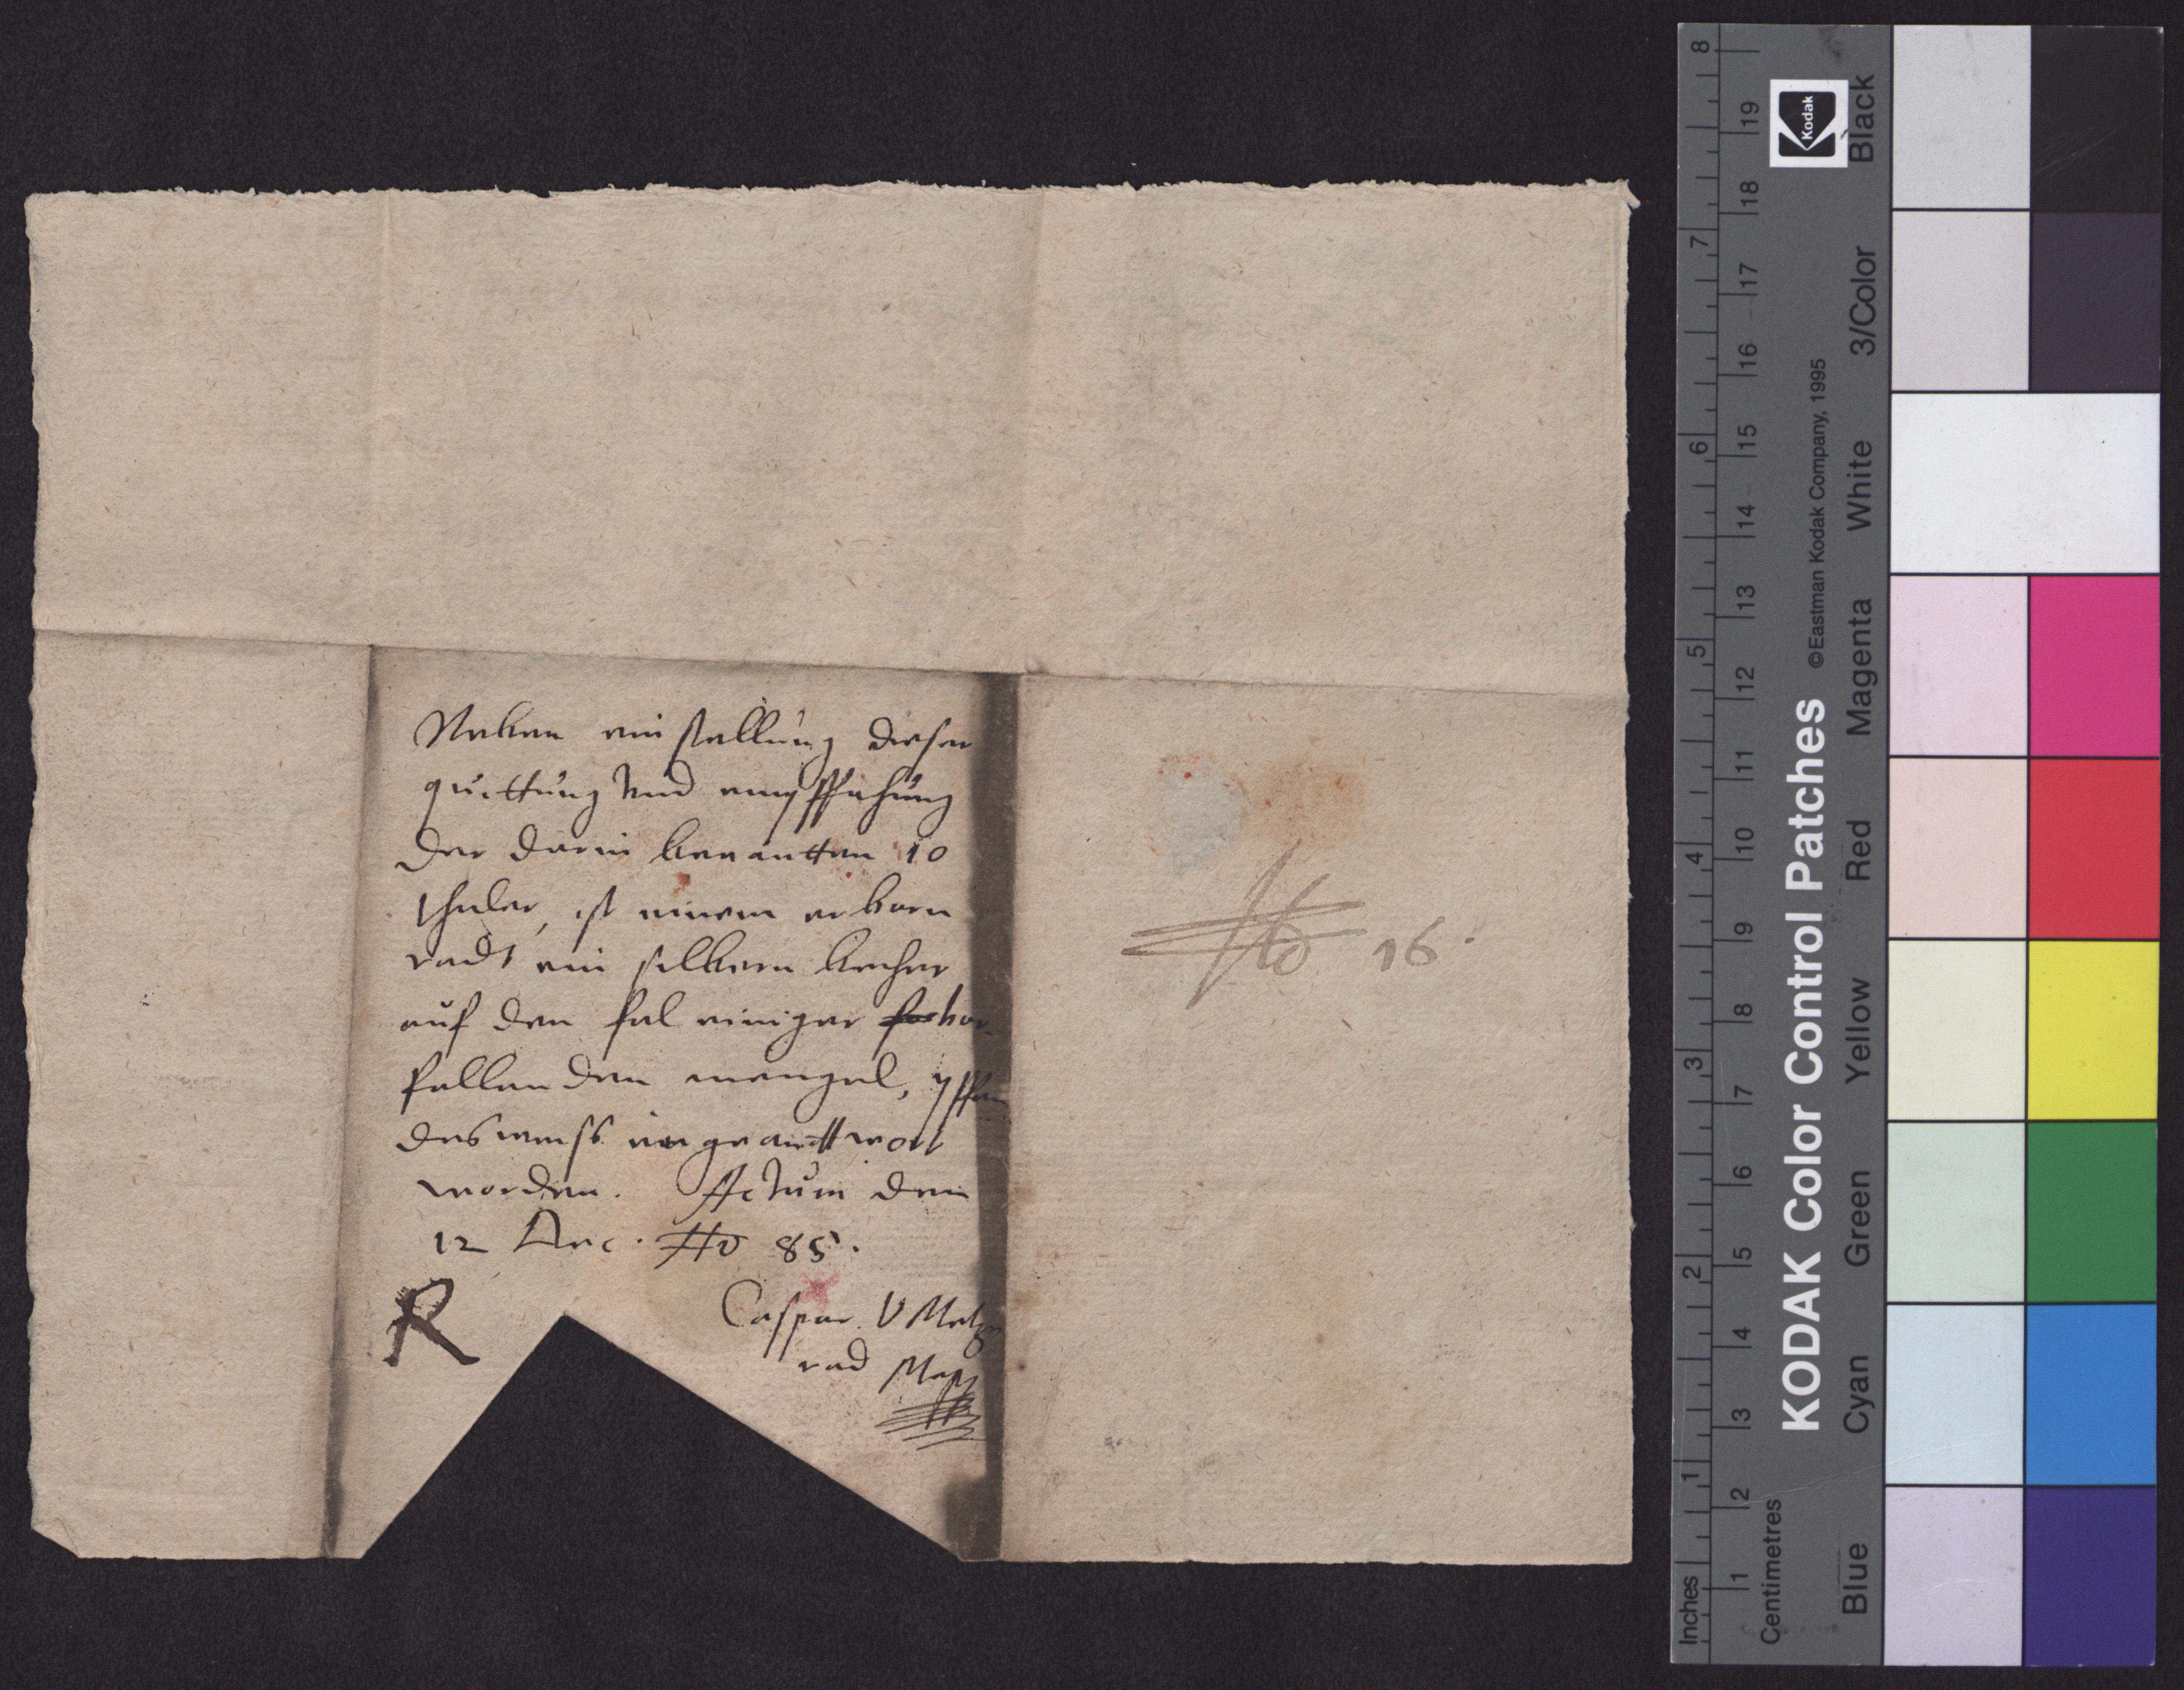 Neben einstellung dieser
quittung vnd empffahung
der darin benantten 10
thaler, ist einem erbarn
radt ein silbern becher
auf den fal einiger for vor
fallenden mengel, pffan
desweiss eingeanttwort
worden. Actum den
12 Dec. Ao 85.
R
Caspar V Metz
No 16.
8
7
6
5
4
3
2
1
Inches
19
18
17
16
15
14
13
12
11
10
9
8
7
6
5
4
3
2
1
Centimetres
Kodak
KODAK Color Control Patches ©Eastman Kodak Company, 1995
Blue Cyan Green Yellow Red Magenta White 3/Color Black